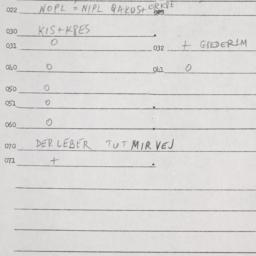 022 NOPL = NIPL
030 KIS+KPES
031 0 032 + GIDERIM
040 0 041 0
050 0
051 0
060 0
070 DER LEBER TUT MIR VEJ
071 +